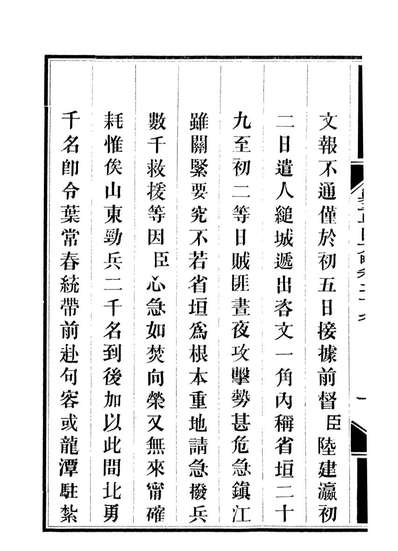 文報不通僅於初五日接據前督臣陸建瀛初
二日遣人縋城遞出咨文一角內稱省垣二十
九至初二等日賊匪晝夜攻擊勢甚危急鎮江
雖關緊要究不若省垣為根本重地請急撥兵
數千救援等因臣心急如焚向榮又無來甯確
耗惟俟山東勁兵二千名到後加以此間北勇
千名卽令葉常春統帶前赴句容或龍潭駐紮